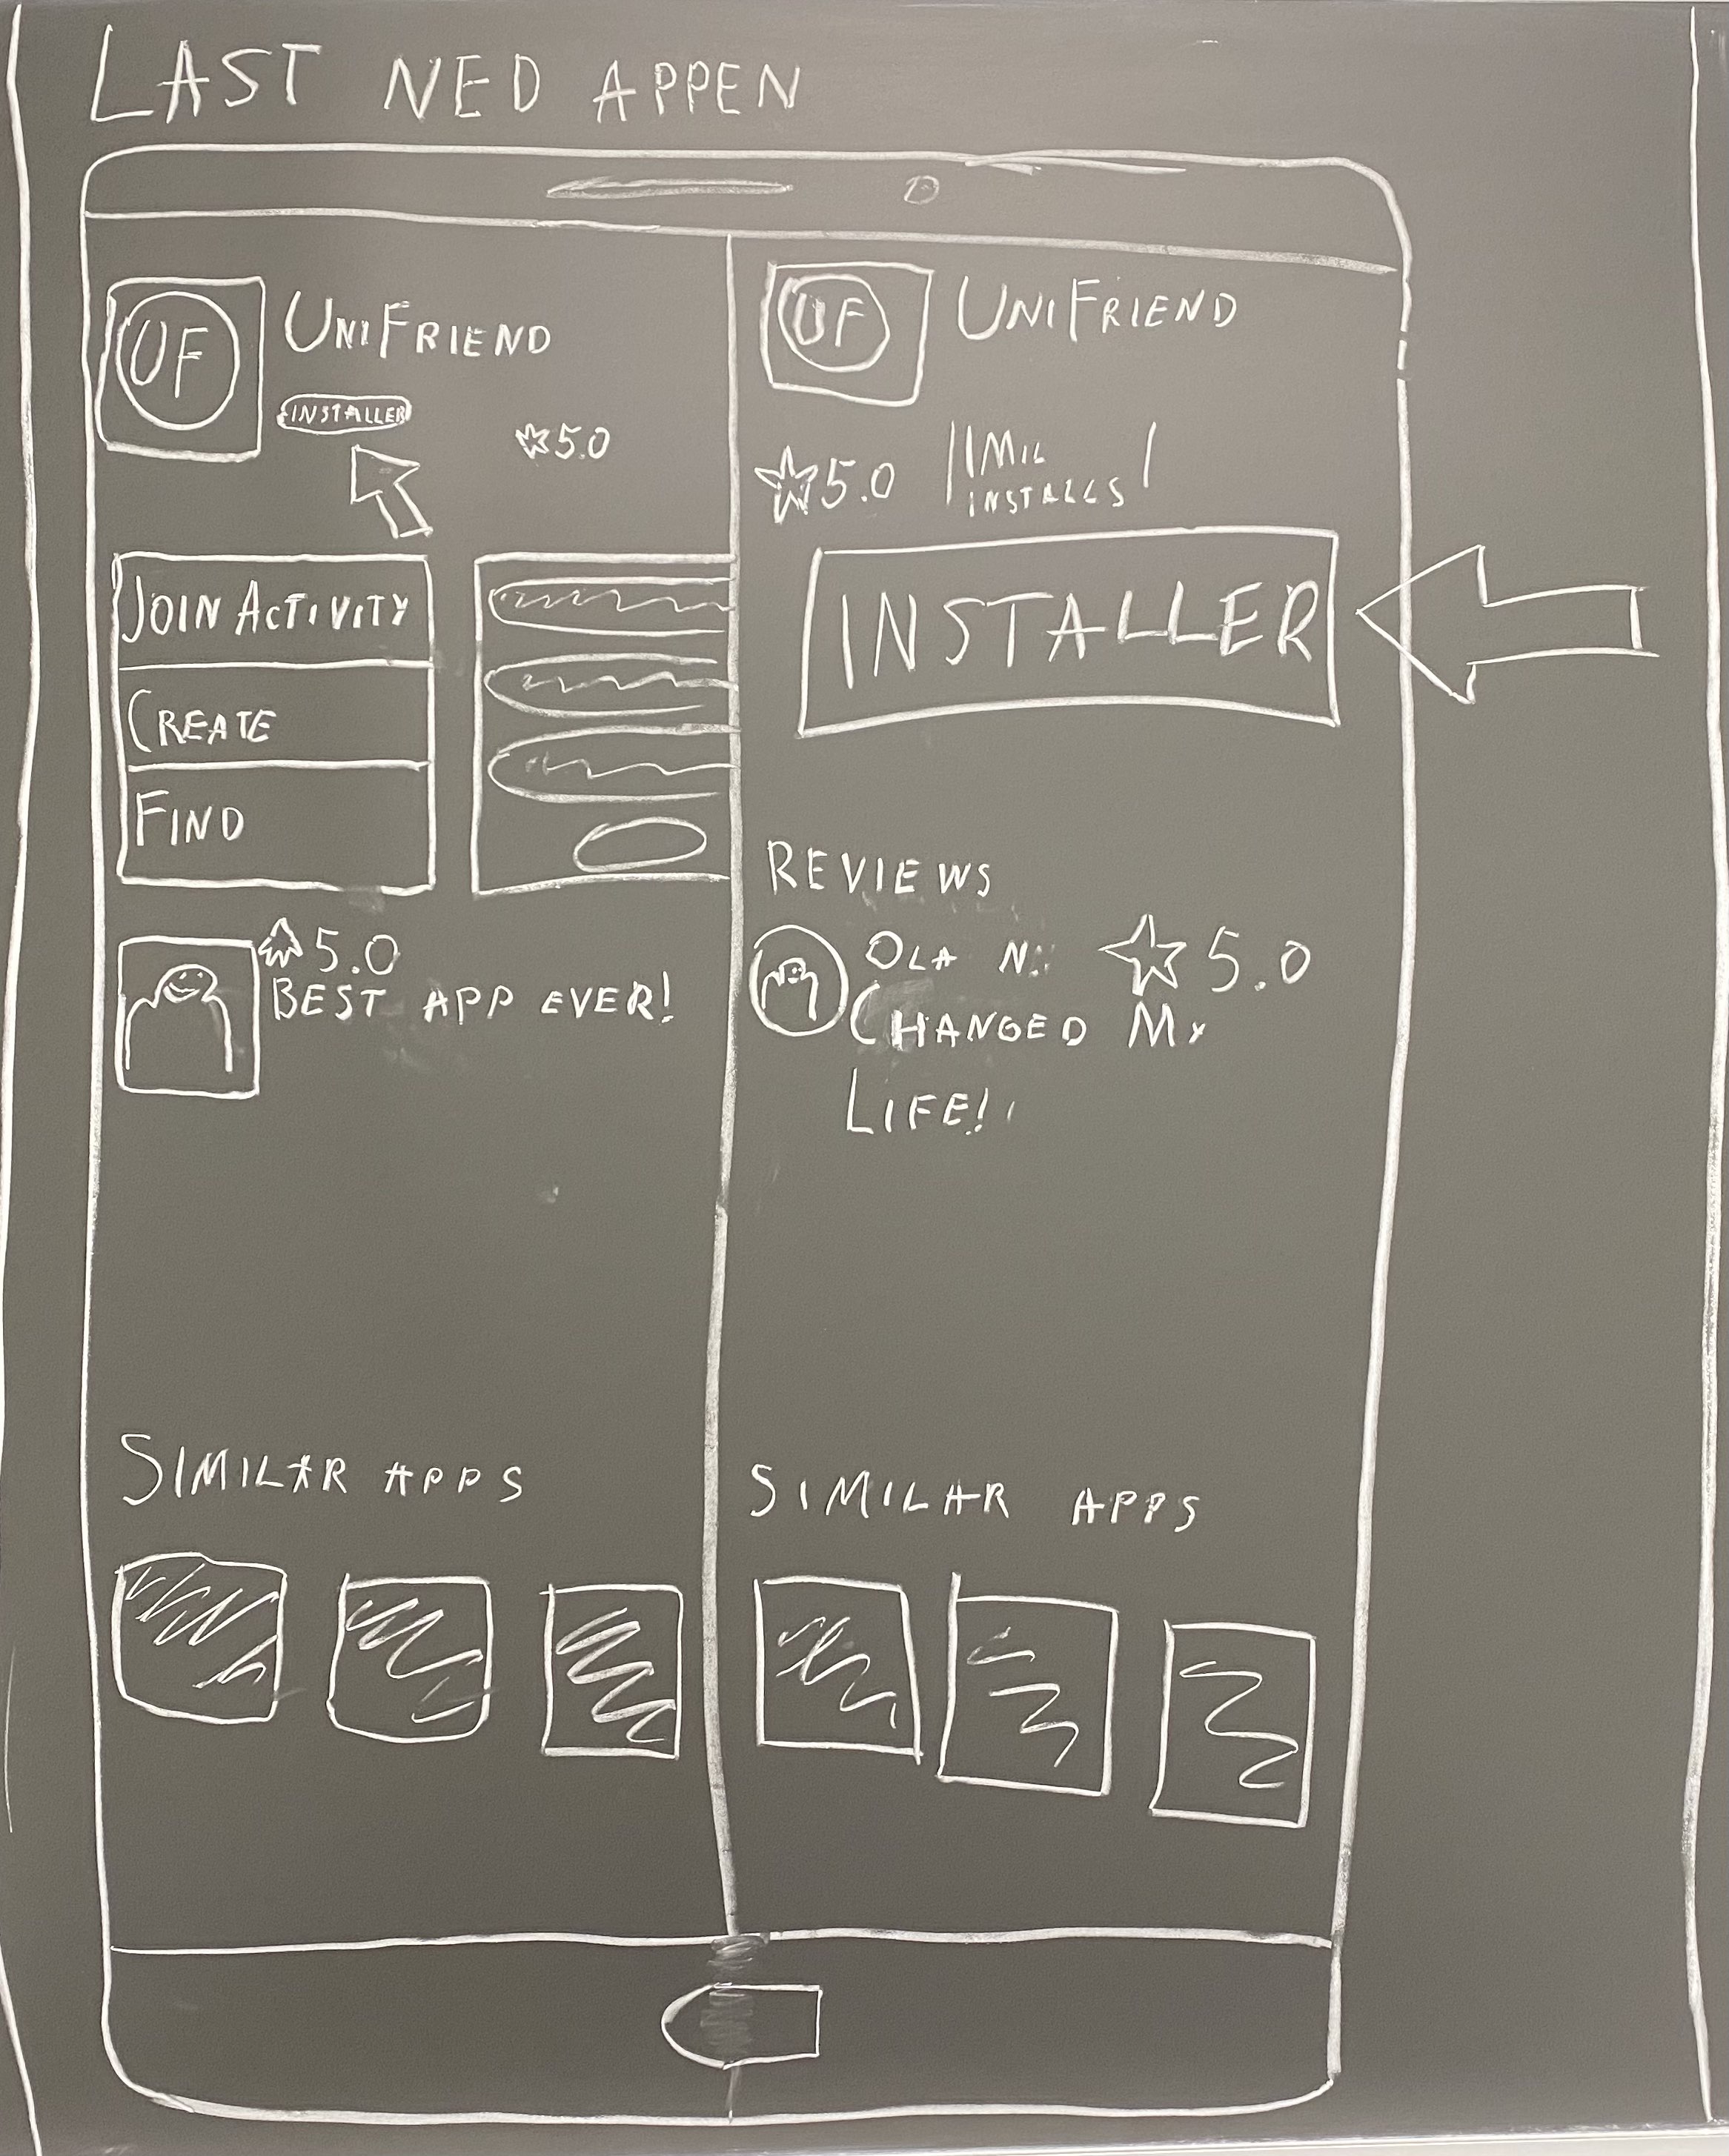 LAST NED APPEN
UF
UNIFRIEND
INSTALLER
5.0
JOIN ACTIVITY
CREATE
FIND
5.0
BEST APP EVER!
SIMILAR APPS
UF
UNIFRIEND
5.0
1 MIL
INSTALLS
INSTALLER
REVIEWS
OLA N. 5.0
CHANGED MY
LIFE!
SIMILAR APPS